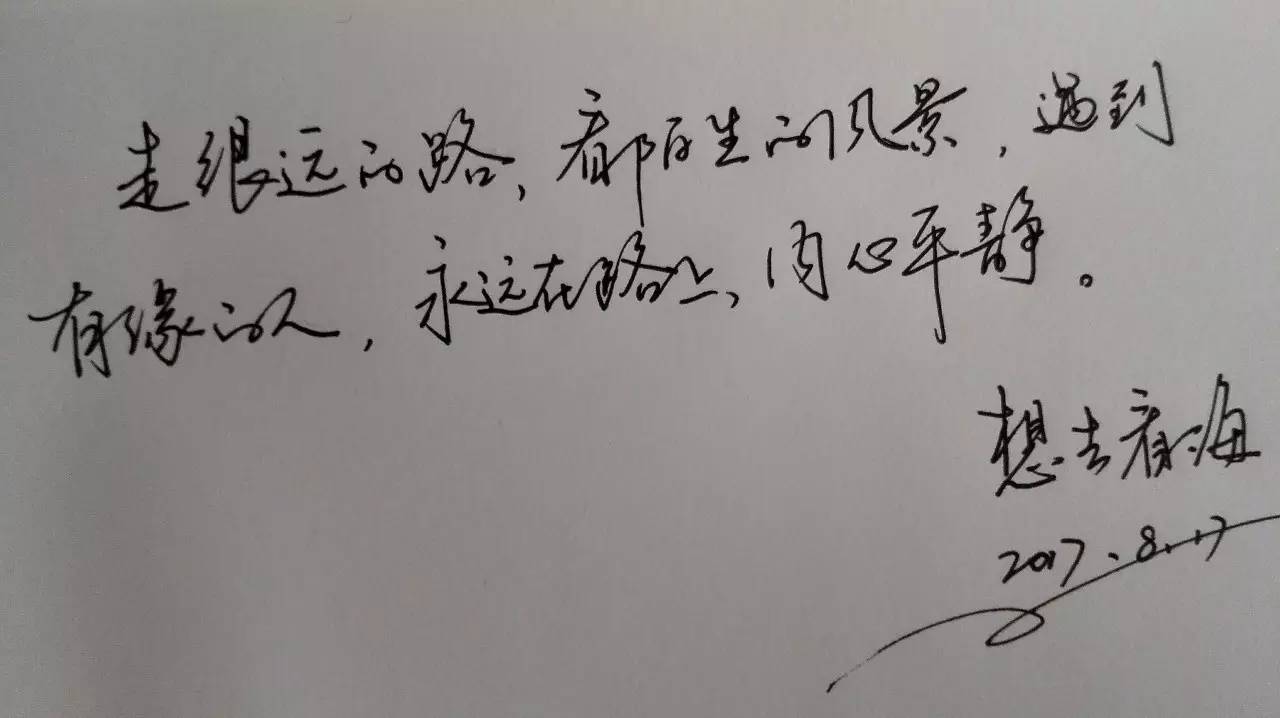 走很远的路、看陌生的风景，遇到
有缘的人，永远在路上、内心平静。
想去看海
2017.8.17